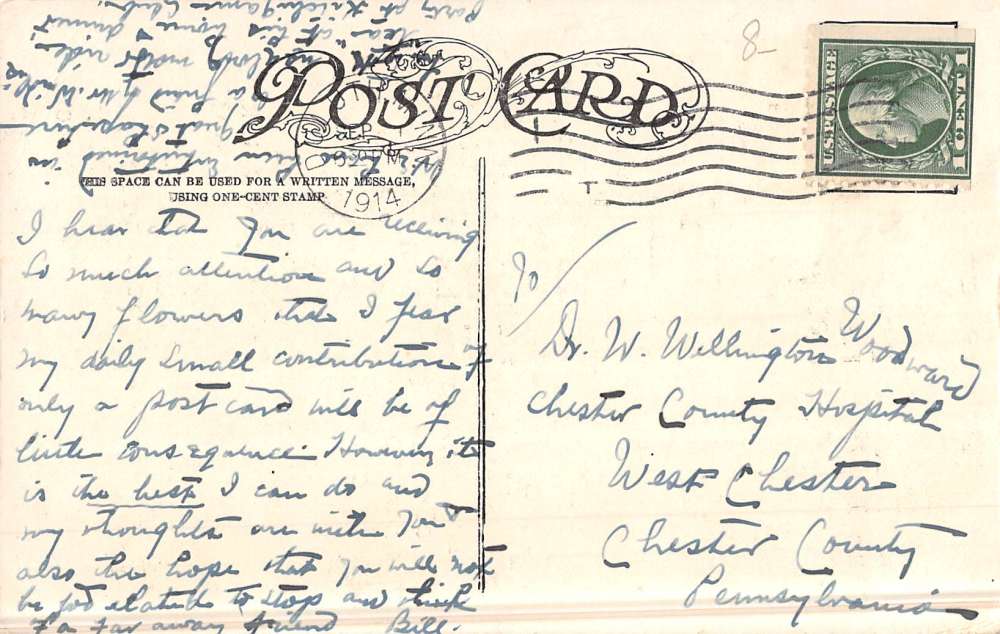 POST CARD
8-
U.S. POSTAGE
1 CENT 1
SEP
1914
THIS SPACE CAN BE USED FOR A WRITTEN MESSAGE,
USING ONE-CENT STAMP
I hear that you are receiving
so much attention and so
many flowers that I fear
my daily small contribution of
only a post card will be of
little consequence. However, it
is the best I can do and
my thoughts are with you
also the hope that you will not
be too elated to stop and think
of a far away friend Bill.
been entertained in
great shape here
a friend of Mr.
motor ride
at his home & dinner
party at
To
Dr. W. Wellington Woodward
Chester County Hospital
West Chester
Chester County
Pennsylvania